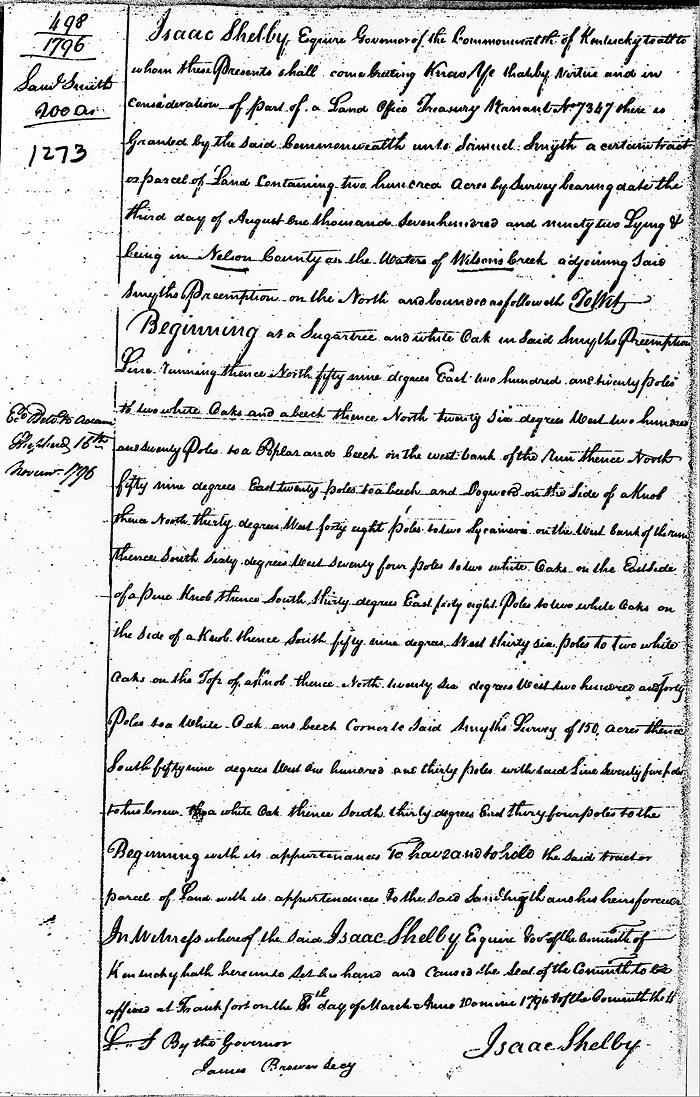 498
1796
Saml Smith
200 as
1273
Isaac Shelby Esquire Governor of the Commonwealth of Kentucky to all to
whom these Presents shall come Greeting Know Ye that by Virtue and in
consideration of part of a Land Office Treasury Warrant No 7347 there is
Granted by the said Commonwealth unto Samuel Smyth a certain tract
or parcel of Land Containing two hundred Acres by Survey bearing date the
third day of August One thousand Seven hundred and ninety two Lying &
being in Nelson County on the Waters of Wilsons Creek adjoining Said
Smyths Preemption on the North and bounded as followeth To Wit
Beginning at a Sugartree and white Oak in Said Smyths Preemption
Line running thence North fifty nine degrees East two hundred and twenty poles
to two white Oaks and a beech thence North twenty Six degrees West two hundred
and twenty Poles to a Poplar and beech on the west bank of the run thence North
fifty nine degrees East twenty poles to a beech and Dogwood on the Side of a Knob
thence North thirty degrees West forty eight poles to two Sycamores on the West bank of the run
thence South Sixty degrees West Seventy four poles to two white Oaks on the East side
of a pine Knob thence South thirty degrees East forty eight Poles to two white Oaks on
the Side of a Knob thence South fifty nine degrees West thirty six poles to two white
Oaks on the Top of a Knob thence North twenty Six degrees West two hundred and forty
Poles to a White Oak and beech Corner to Said Smyths Survey of 150 acres thence
South fifty nine degrees West One hundred and thirty poles with said Line Seventy five poles
to his Corner a white Oak thence South thirty degrees East thirty four poles to the
Beginning with its appurtenances To have and to hold the said tract or
parcel of Land with its appurtenances To the Said Saml Smyth and his heirs forever
In Witness whereof the Said Isaac Shelby Esquire Govr of the Commth of
Kentucky hath hereunto Set his hand and Caused the Seal of the Commth to be
affixed at Frankfort on the day of March Anno Domini 1796 & of the Commth the 4
L. S By the Governor
James Brown Secy
Isaac Shelby
16th
Novemr 1796